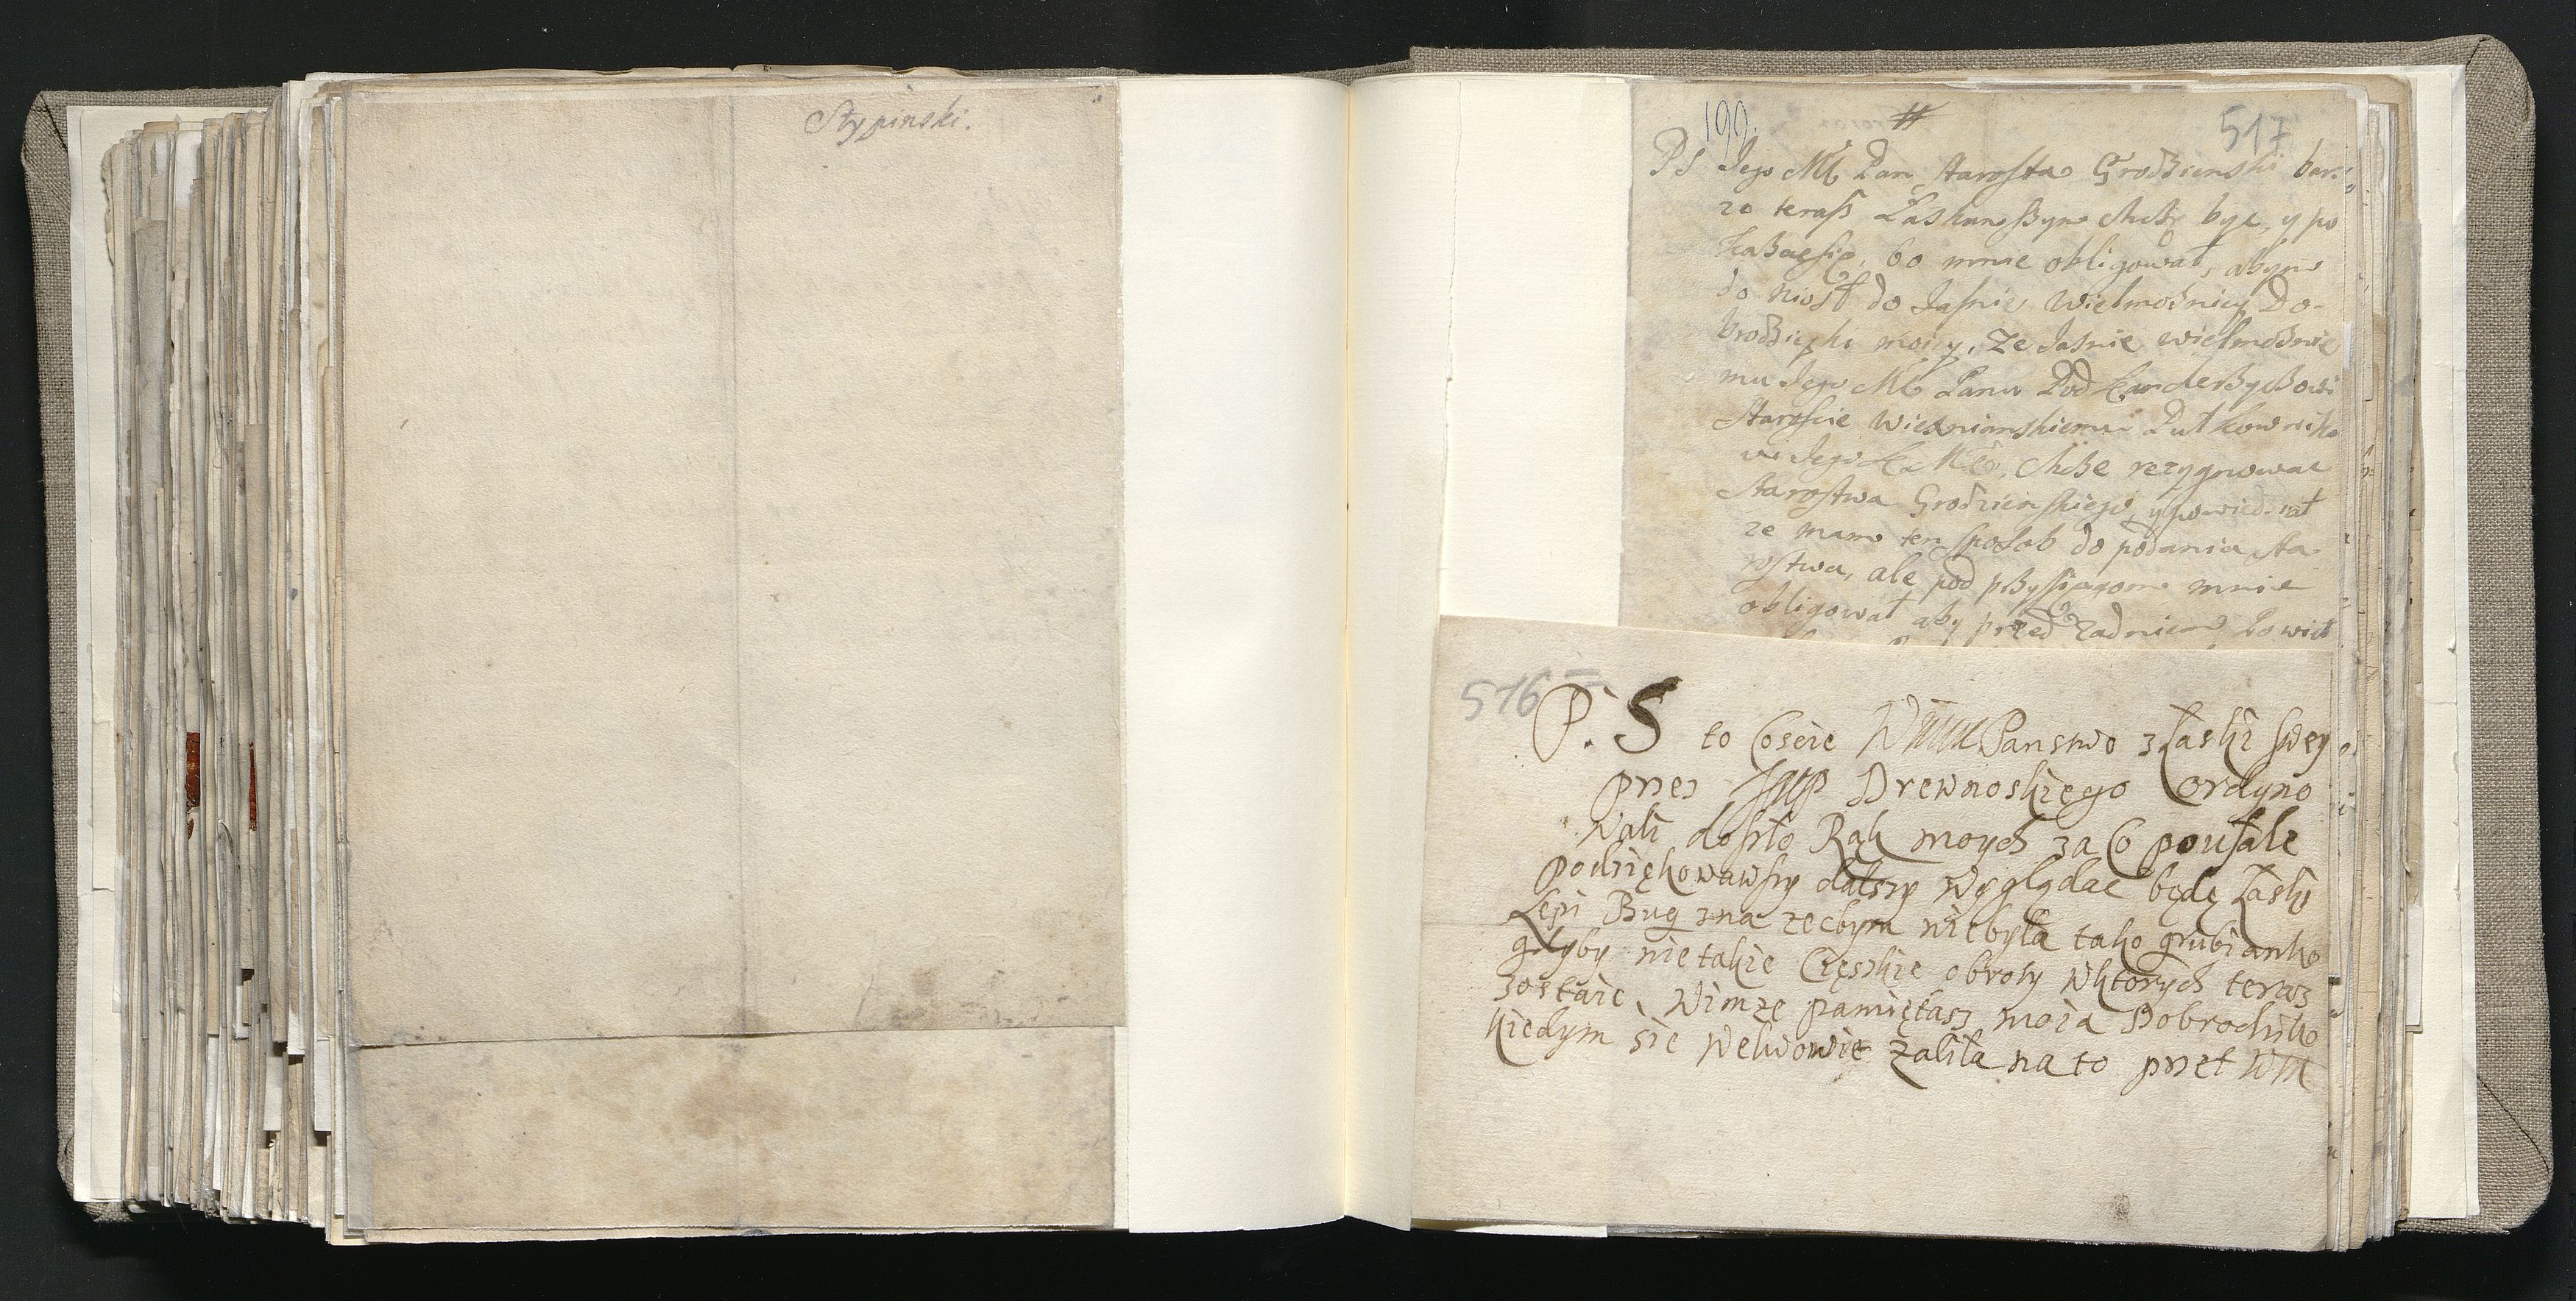 Stypinski.
199.
#
517
PS Jego Mć Pan Starosta Grodzienski bar:
zo terass Łaskawszym Chcze byc, y po
kazacsię, bo mnie obligował, abym
do niosł do Jasnie Wielmożney Do-
brodzieyki moiey, Ze Jasnie wielmożne
mu Jego Mć Panu Podkanclerzyzowi
Staroscie Wieluniaskiemu Pułkowniko
wi Jego K Mći, Chcze rezygnowac
Starostwa Grodzienskiego ypowiedział
ze mam ten sposob do podania sta-
rostwa, ale pod przysięgom mnie
obligował aby przed Zadniem Powiet
516
P. S to Coscie WMM Panstwo złaski swey
przes JMP Drewnoskiego Cordyno
wali doszło Rąk moych za Co poufale
Podziękowawszy dalszy wyglądac będę Łaski
Lepi Bug zna zecbym niebyła tako grubianko
gdyby nietakie Cięszkie obroty wktorych teraz
zostaie, Wimze pamiętasz moia Dobrodziko
kiedym sie welwowie Zaliła na to przet WM